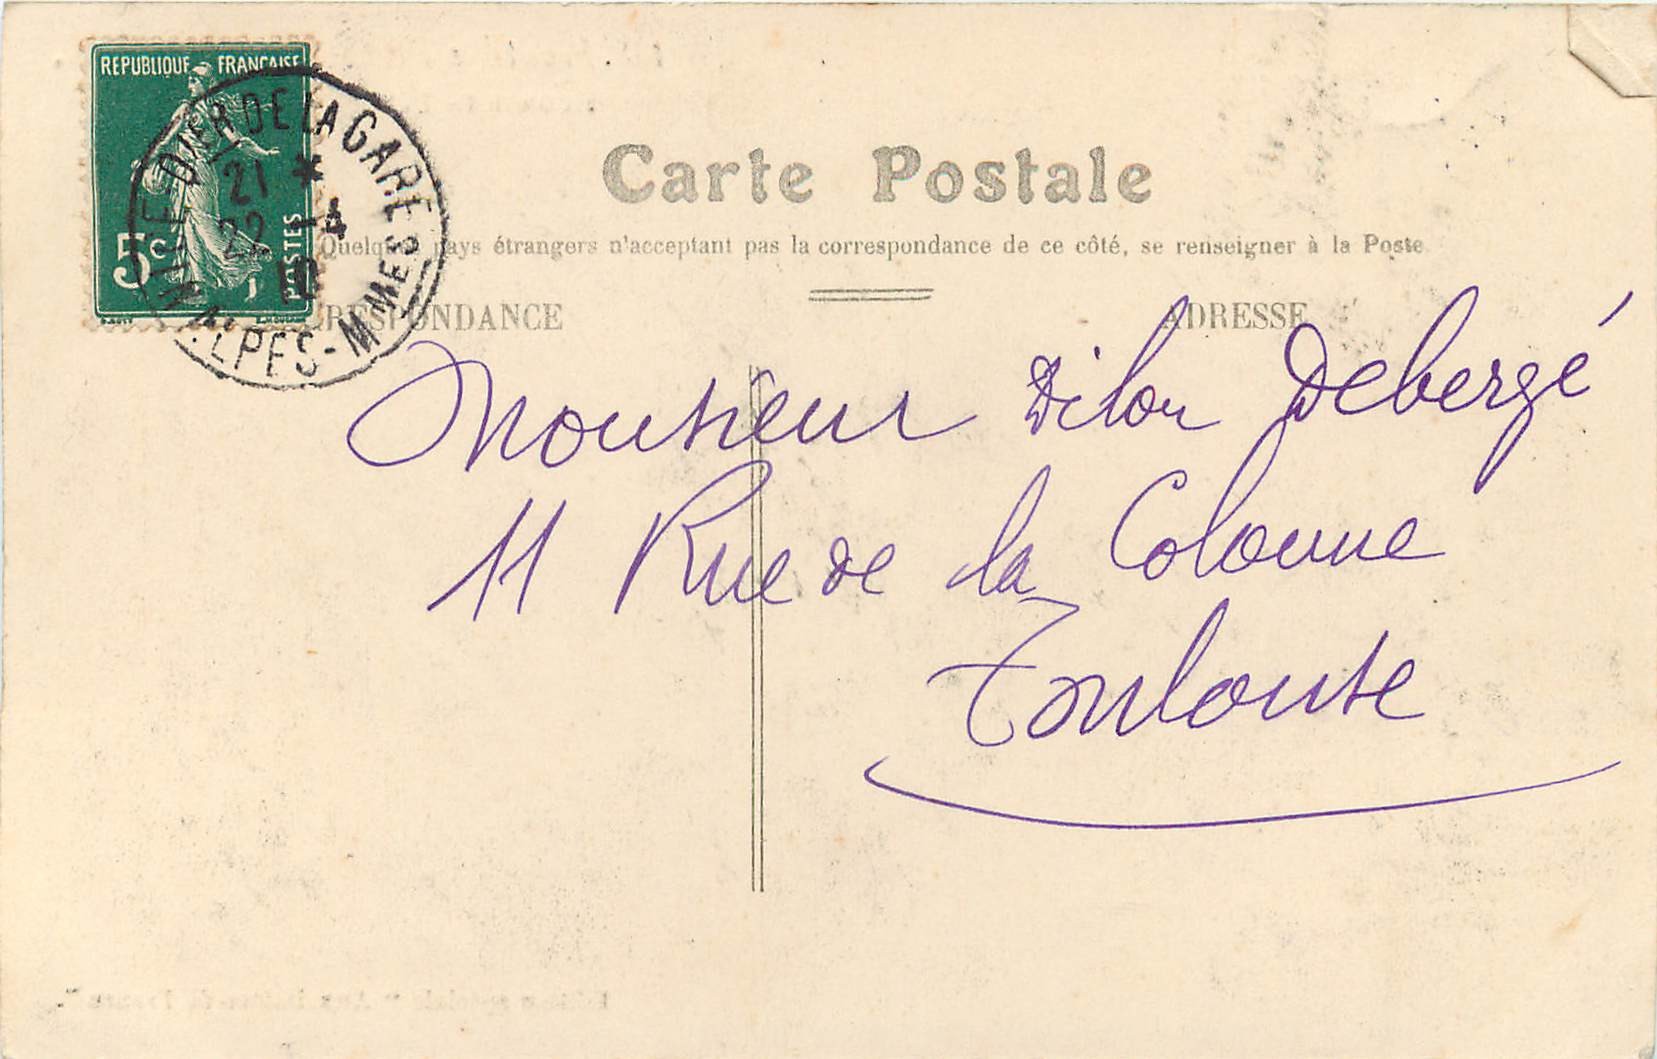 REPUBLIQUE FRANÇAISE
5c POSTES
DE LA GARE
21 *
22 -4
10
ALPES-MMES
Carte Postale
Quelques pays étrangers n'acceptant pas la correspondance de ce côté, se renseigner à la Poste
CORRESPONDANCE
ADRESSE
Monsieur Dilou Debergé
11 Rue de la Colonne
Toulouse